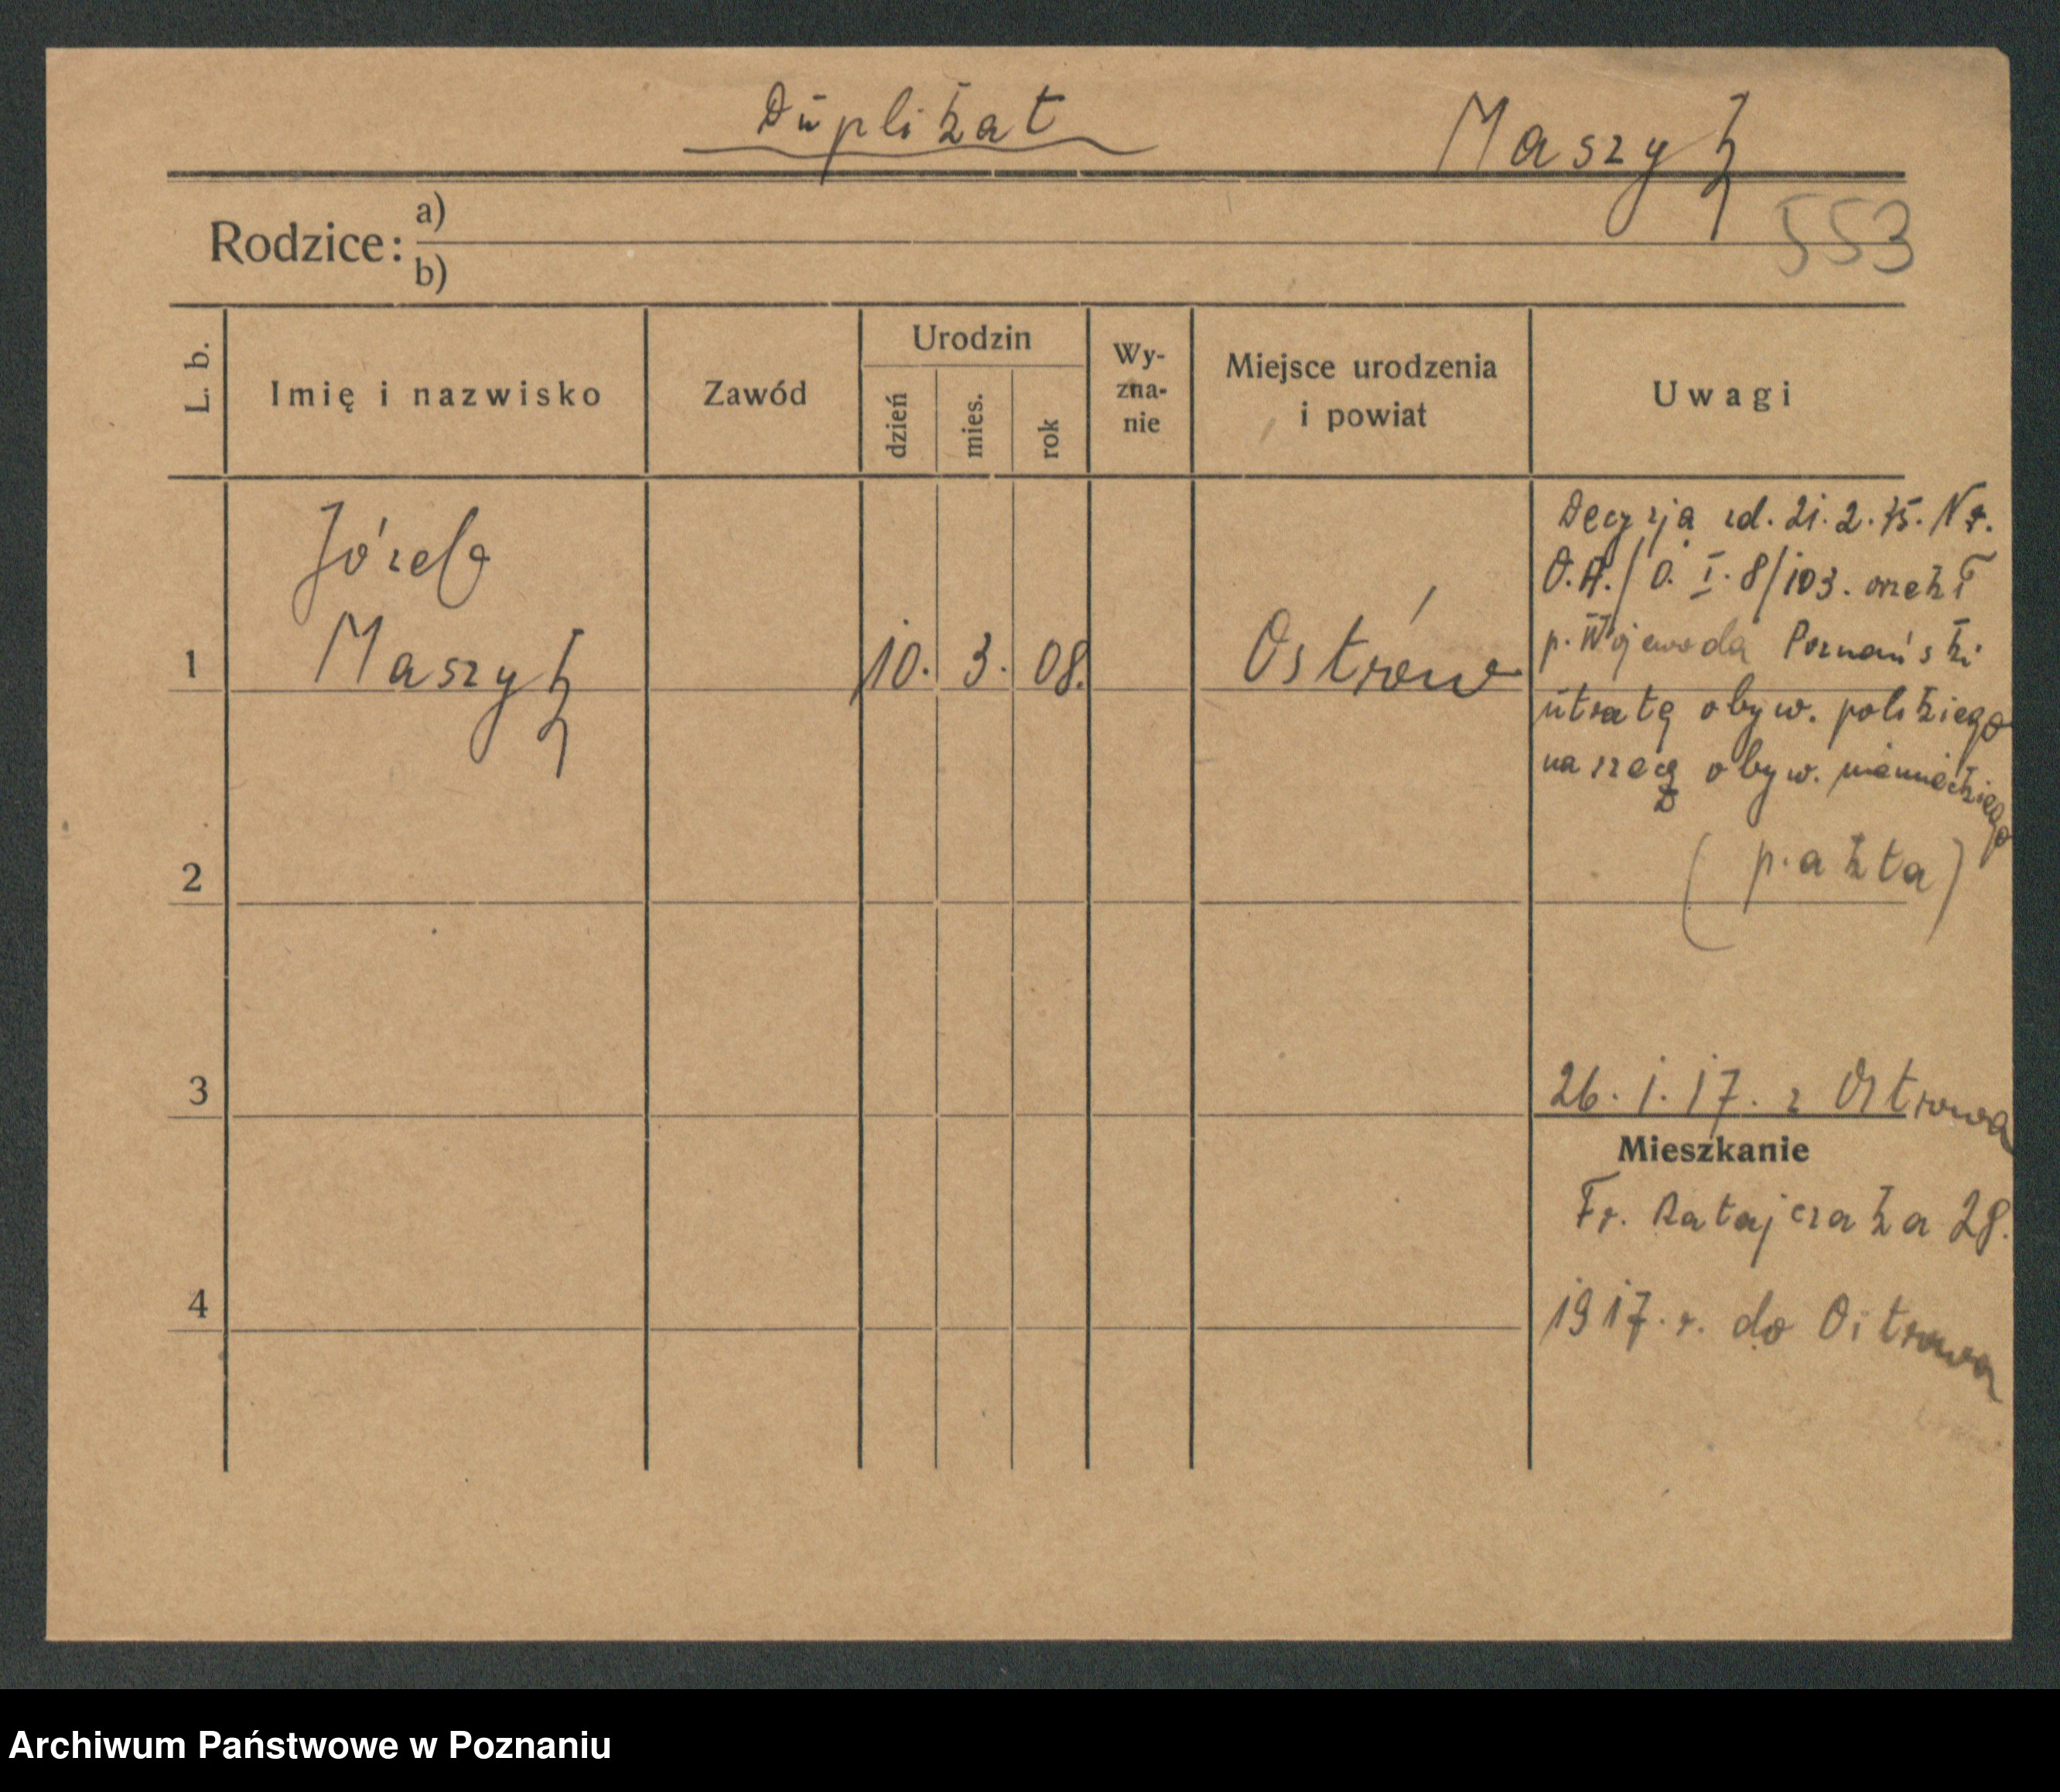 Duplikat
Maszyk
553
Rodzice: a)
b)
L. b.
Imię i nazwisko
Zawód
Urodzin
dzień
mies.
rok
Wy-
zna-
nie
Miejsce urodzenia
i powiat
Uwagi
Józef
1 Maszyk 10. 3. 08. Ostrów
Decyzją zd. 21. 2. 35. Nr.
O.A./O. I. 8/103. orzekł
p. Wojewoda Poznański
utratę obyw. polskiego
na rzecz obyw. niemieckiego
(p. akta)
2
3
26. 1. 17. z Ostrowa
Mieszkanie
Fr. Ratajczaka 28.
4
1917. r. do Ostrowa
Archiwum Państwowe w Poznaniu